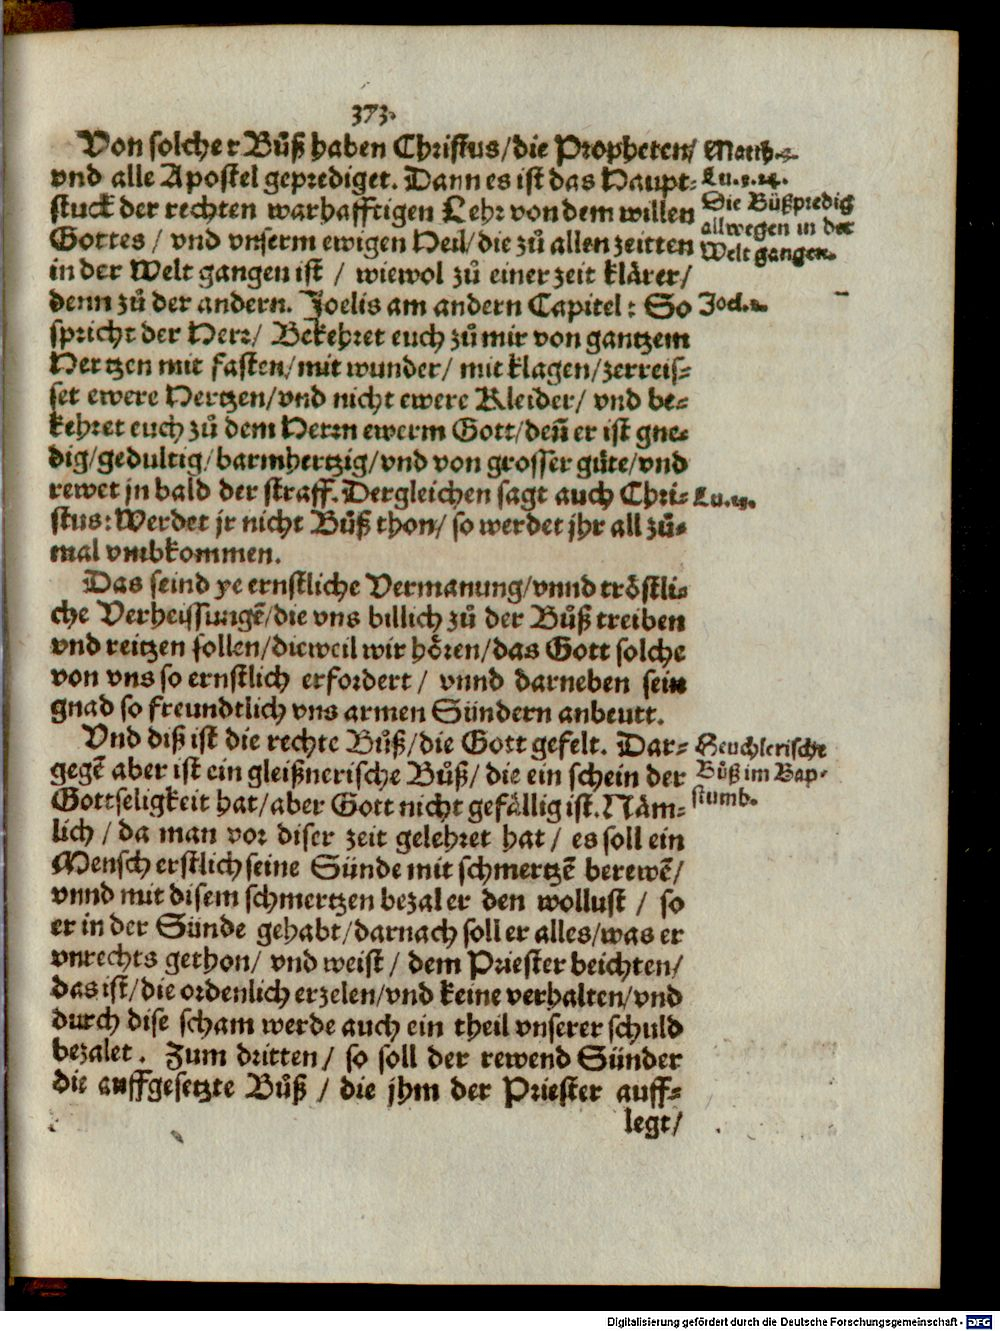 373.
Von solcher Bůß haben Christus/die Propheten/
vnd alle Apostel geprediget. Dann es ist das Haupt-
stuck der rechten warhafftigen Lehr von dem willen
Gottes / vnd vnserm ewigen Heil/die zů allen zeitten
in der Welt gangen ist / wiewol zů einer zeit klärer/
denn zů der andern. Joelis am andern Capitel: So
spricht der Herr/ Bekehret euch zů mir von gantzem
Hertzen mit fasten/mit wunder/ mit klagen/zerreis-
set ewere Hertzen/vnd nicht ewere Kleider/ vnd be-
kehret euch zů dem Herrn ewerm Gott/deñ er ist gne-
dig/gedultig/barmhertzig/vnd von grosser güte/vnd
rewet jn bald der straff. Dergleichen sagt auch Chri-
stus: Werdet jr nicht Bůß thon/ so werdet jhr all zů-
mal vmbkommen.
Das seind ye ernstliche Vermanung/vnnd tröstli-
che Verheissungē/die vns billich zů der Bůß treiben
vnd reitzen sollen/dieweil wir hören/das Gott solche
von vns so ernstlich erfordert / vnnd darneben sein
gnad so freundtlich vns armen Sündern anbeutt.
Vnd diß ist die rechte Bůß/die Gott gefelt. Dar-
gegē aber ist ein gleißnerische Bůß/ die ein schein der
Gottseligkeit hat/aber Gott nicht gefällig ist. Näm-
lich / da man vor diser zeit gelehret hat / es soll ein
Mensch erstlich seine Sünde mit schmertzē berewē/
vnnd mit disem schmertzen bezal er den wollust / so
er in der Sünde gehabt/darnach soll er alles/was er
vnrechts gethon/ vnd weist / dem Priester beichten/
das ist/die ordenlich erzelen/vnd keine verhalten/vnd
durch dise scham werde auch ein theil vnserer schuld
bezalet. Zum dritten/ so soll der rewend Sünder
die auffgesetzte Bůß / die jhm der Priester auff-
legt/
Matth.
Lu.
Die Bůßpredig
allwegen in der
Welt gangen.
Joel.2.
Lu.
Heuchlerische
Bůß im Bap-
stumb.
Digitalisierung gefördert durch die Deutsche Forschungsgemeinschaft - DFG